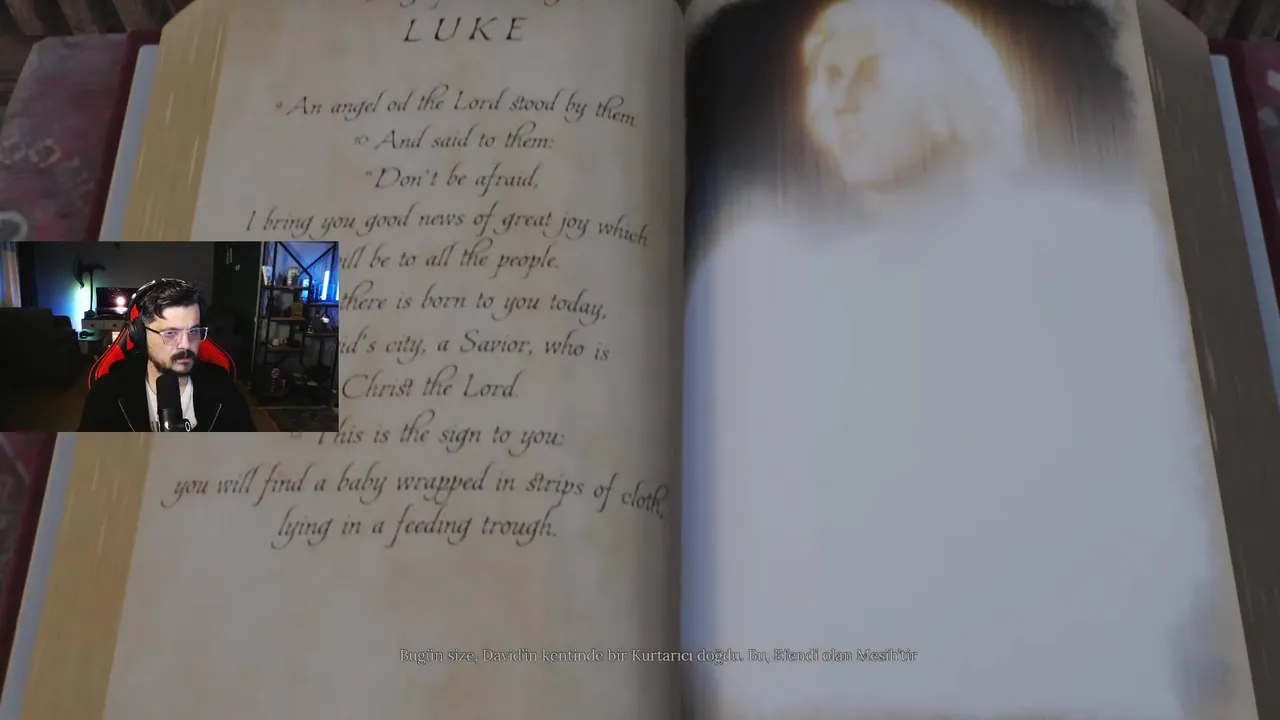 LUKE
9 An angel od the Lord stood by them.
10 And said to them:
"Don't be afraid,
I bring you good news of great joy which
ll be to all the people.
there is born to you today,
d's city, a Savior, who is
Christ the Lord.
12 This is the sign to you:
you will find a baby wrapped in strips of cloth,
lying in a feeding trough.
Bugün size, David'in kentinde bir Kurtarıcı doğdu. Bu, Efendi olan Mesih'tir